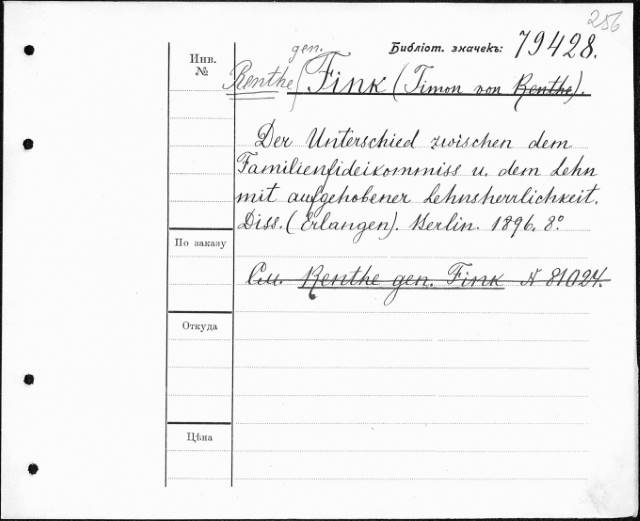 256
Библіот. значекъ: 79428.
Инв.
№
gen.
Renthe / Fink (Timon von Renthe).
Der Unterschied zwischen dem
Familienfideikommiss u. dem Lehn
mit aufgehobener Lehnsherrlichkeit.
Diss. (Erlangen). Berlin. 1896. 8º
По заказу
См. Renthe gen. Fink № 81024.
Откуда
Цѣна